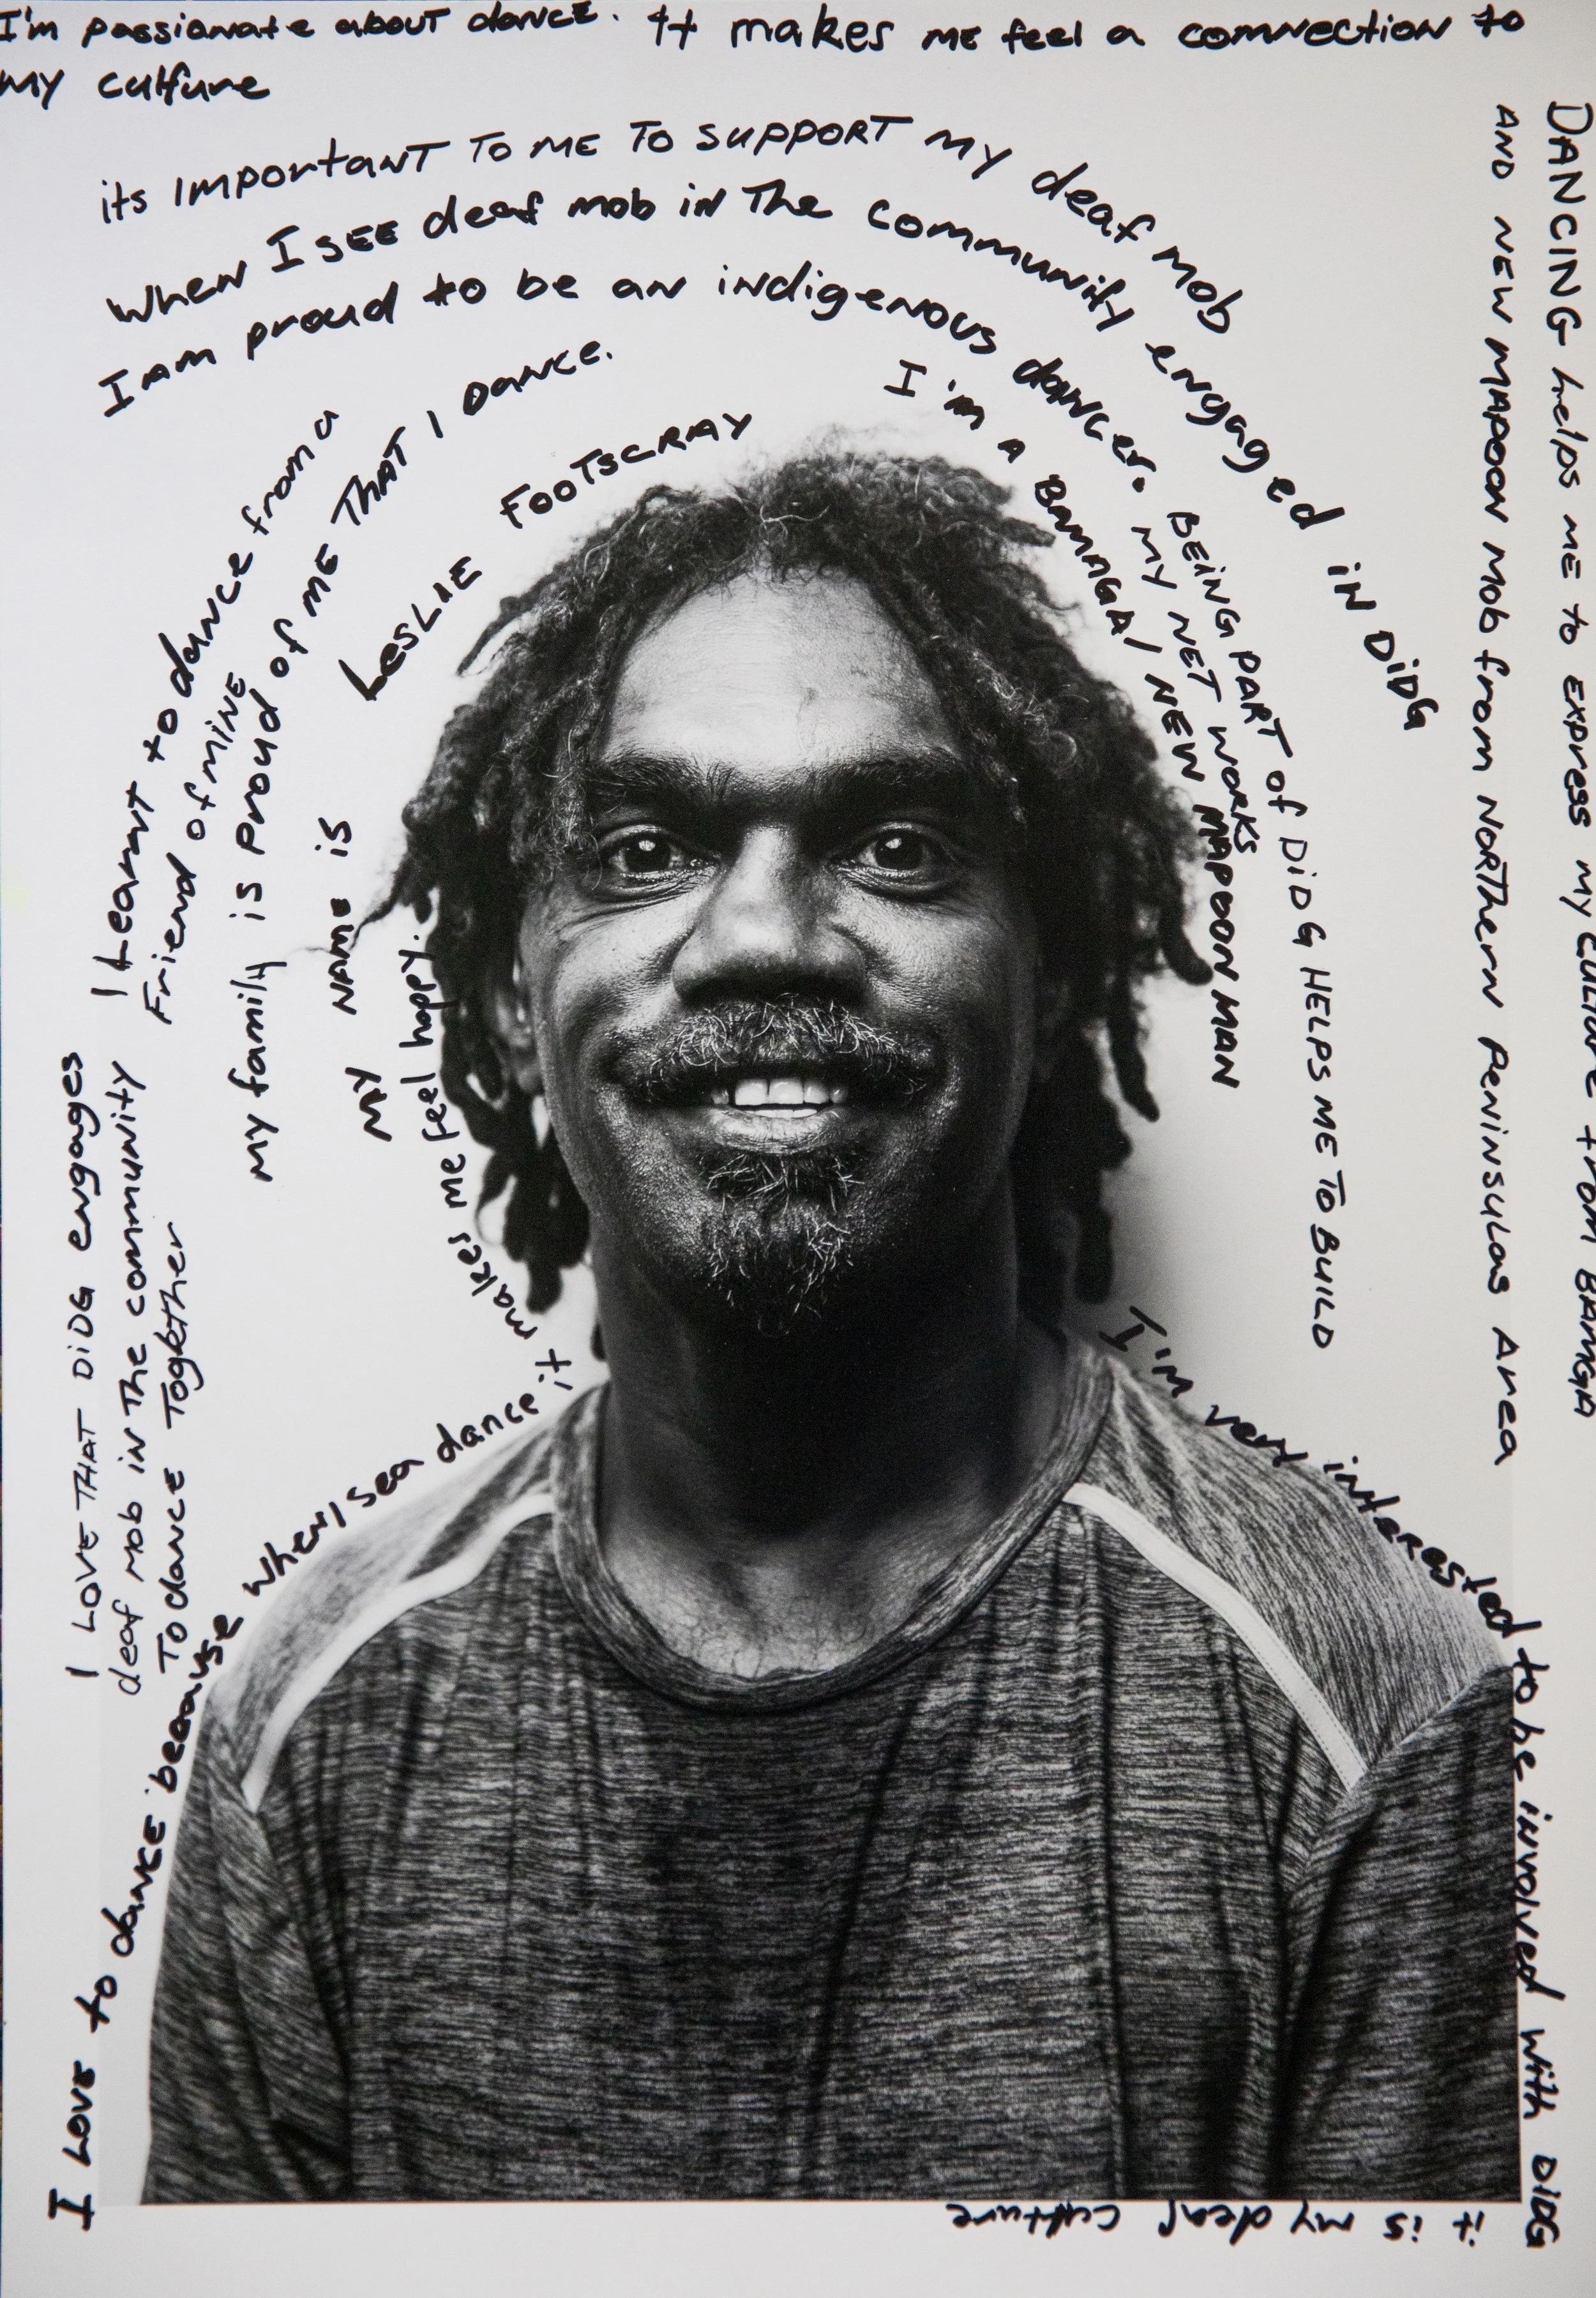 I'm passionate about dance. It makes me feel a connection to
my culture
its IMPORTANT TO ME TO SUPPORT MY deaf mob
When I SEE deaf mob in The community engaged iN DiDG
I am proud to be an indigenous dancer.
BEiNG PART of DiDG HELPS ME TO BUiLD
MY NET WORKS
I'm A BAMAGA / NEW MAPOON MAN
MY NAME is LESLIE FOOTSCRAY
my family is proud of ME THAT I DANCE.
I Learnt to dance from a
Friend of mine
I LOVE THAT DiDG engages
deaf mob in The community
To dance Together
I LOVE to dance because when I sea dance it makes me feel happy.
DANCING helps me to express my culture from BAMGA
AND NEW MAPOON Mob from NORThern Peninsulas Area
I'm very interested to be involved with DiDG
it is my deaf culture